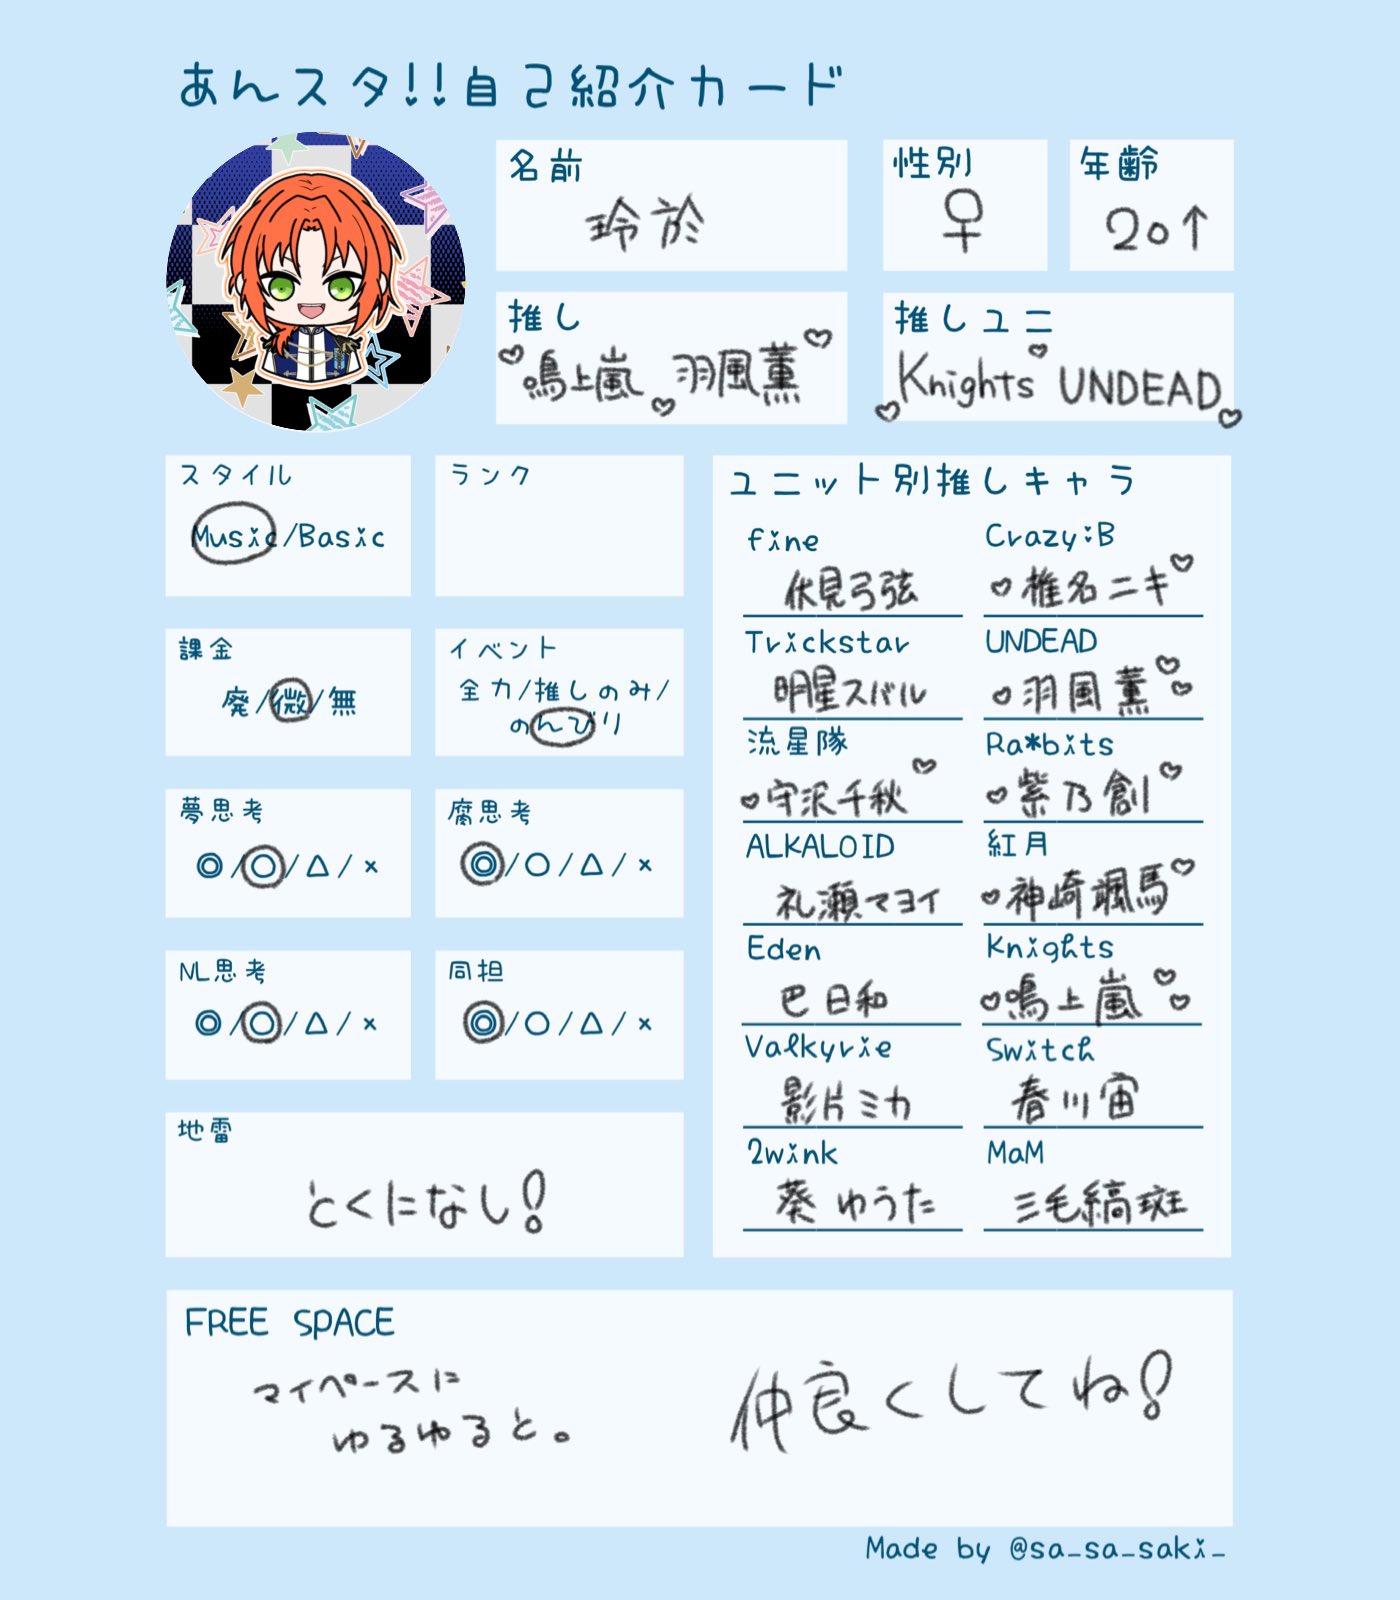 あんスタ!!自己紹介カード
名前
玲於
性別
♀
年齢
20↑
推し
♡鳴上嵐♡羽風薫♡
推しユニ
♡Knights♡UNDEAD♡
スタイル
Music/Basic
ランク
課金
廃/微/無
イベント
全力/推しのみ/
のんびり
夢思考
◎/○/△/×
腐思考
◎/○/△/×
NL思考
◎/○/△/×
同担
◎/○/△/×
地雷
とくになし!
ユニット別推しキャラ
fine
伏見弓弦
Crazy:B
♡椎名ニキ♡
Trickstar
明星スバル
UNDEAD
♡羽風薫♡♡
流星隊
♡守沢千秋♡
Ra*bits
♡紫乃創♡
ALKALOID
礼瀬マヨイ
紅月
♡神崎颯馬♡
Eden
巴日和
Knights
♡鳴上嵐♡♡
Valkyrie
影片ミカ
Switch
春川宙
2wink
葵ゆうた
MaM
三毛縞斑
FREE SPACE
マイペースに
ゆるゆると。
仲良くしてね!
Made by @sa_sa_saki_